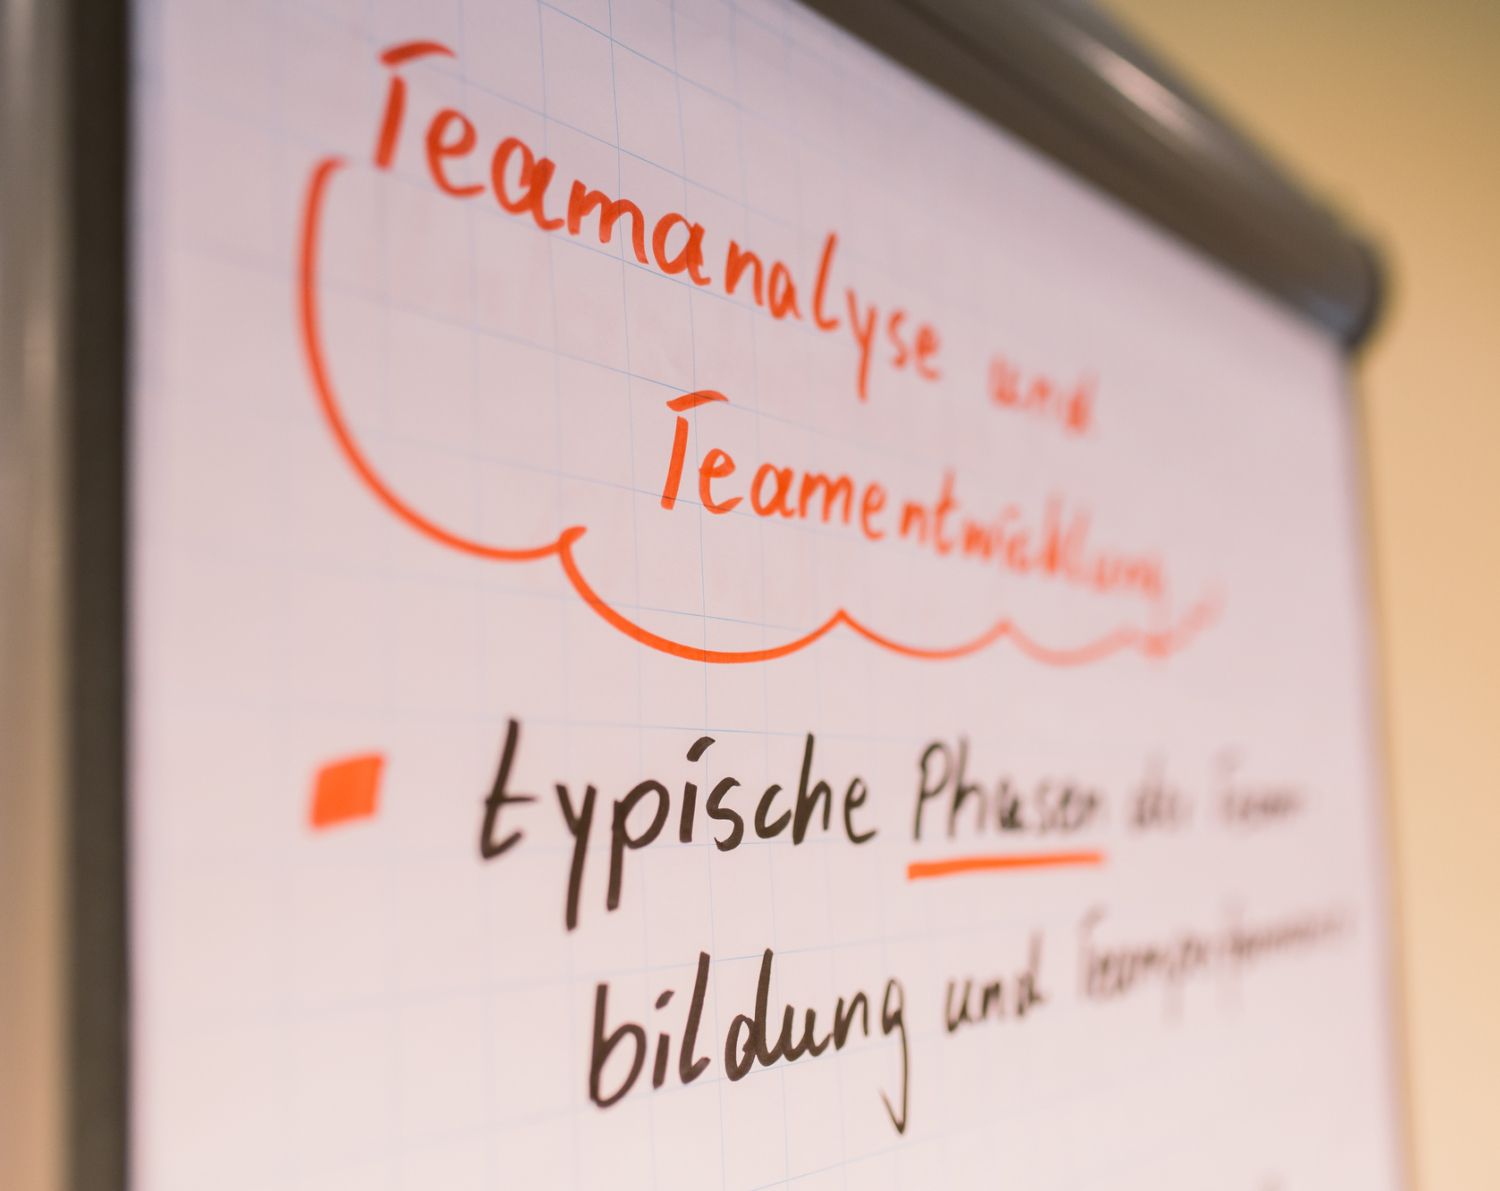 Teamanalyse und
Teamentwicklung
typische Phasen der Team
bildung und